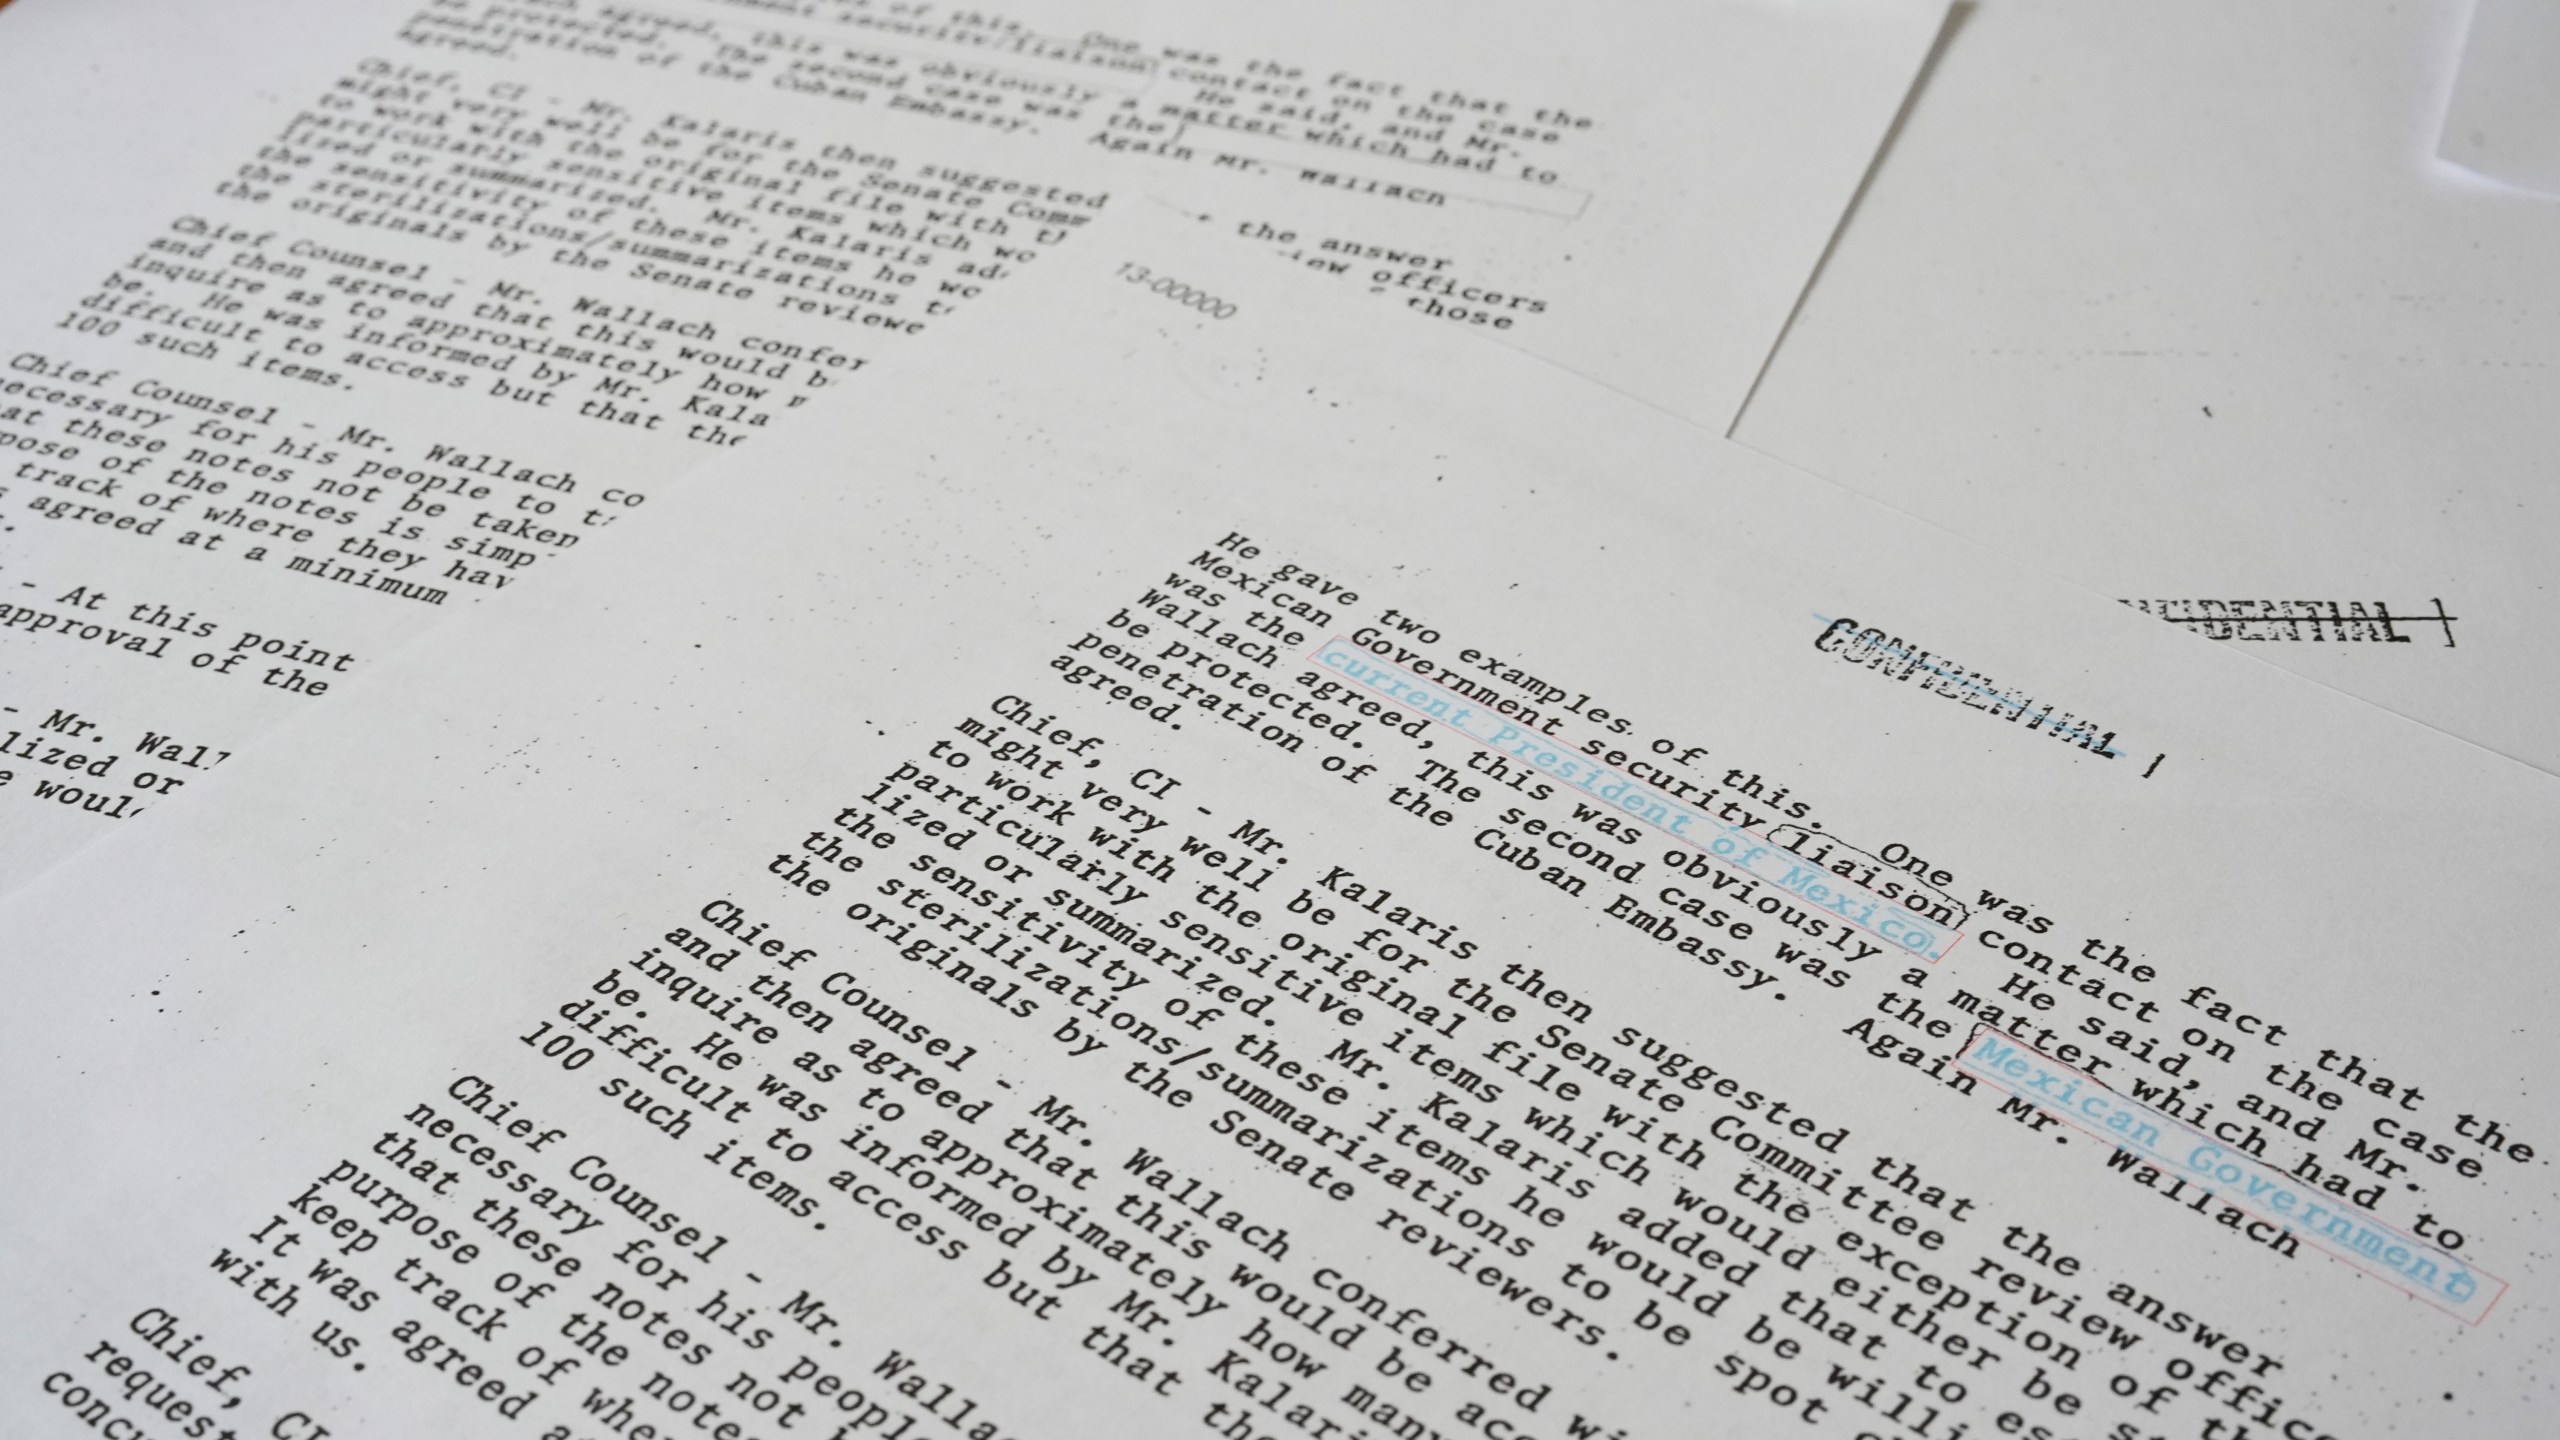 of this. One was the fact that the
security/liaison contact on the case
He said, and Mr.
agreed, this was obviously a matter which had to
be protected. The second case was the
penetration of the Cuban Embassy. Again Mr. Wallach
agreed.
Chief, CI - Mr. Kalaris then suggested
might very well be for the Senate Comm
to work with the original file with
particularly sensitive items which wo
lized or summarized. Mr. Kalaris
the sensitivity of these items he wo
the sterilizations/summarizations
the originals by the Senate reviewe
the answer
officers
those
Chief Counsel - Mr. Wallach confer
and then agreed that this would b
inquire as to approximately how
be. He was informed by Mr. Kala
difficult to access but that the
100 such items.
Chief Counsel - Mr. Wallach co
necessary for his people to
at these notes not be taken
pose of the notes is simp
track of where they hav
agreed at a minimum
- At this point
approval of the
- Mr. Wall
lized or
would
13-00000
CONFIDENTIAL
FIDENTIAL
He gave two examples of this. One was the fact that the
Mexican Government security liaison contact on the case
was the current President of Mexico. He said, and Mr.
Wallach agreed, this was obviously a matter which had to
be protected. The second case was the Mexican Government
penetration of the Cuban Embassy. Again Mr. Wallach
agreed.
Chief, CI - Mr. Kalaris then suggested that the answer
might very well be for the Senate Committee review office
to work with the original file with the exception of th
particularly sensitive items which would either be st
lized or summarized. Mr. Kalaris added that to es
the sensitivity of these items he would be willi
the sterilizations/summarizations to be spot
the originals by the Senate reviewers.
Chief Counsel - Mr. Wallach conferred wi
and then agreed that this would be acc
inquire as to approximately how many
be. He was informed by Mr. Kalari
difficult to access but that the
100 such items.
Chief Counsel - Mr. Wallac
necessary for his people
that these notes not
purpose of the notes
keep track of wher
It was agreed a
with us.
Chief, CI
request
concu